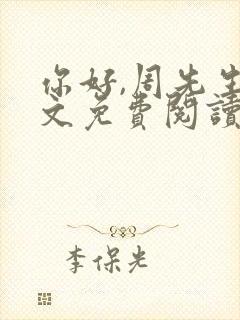 你好,周先生
文免费閱讀
李保光